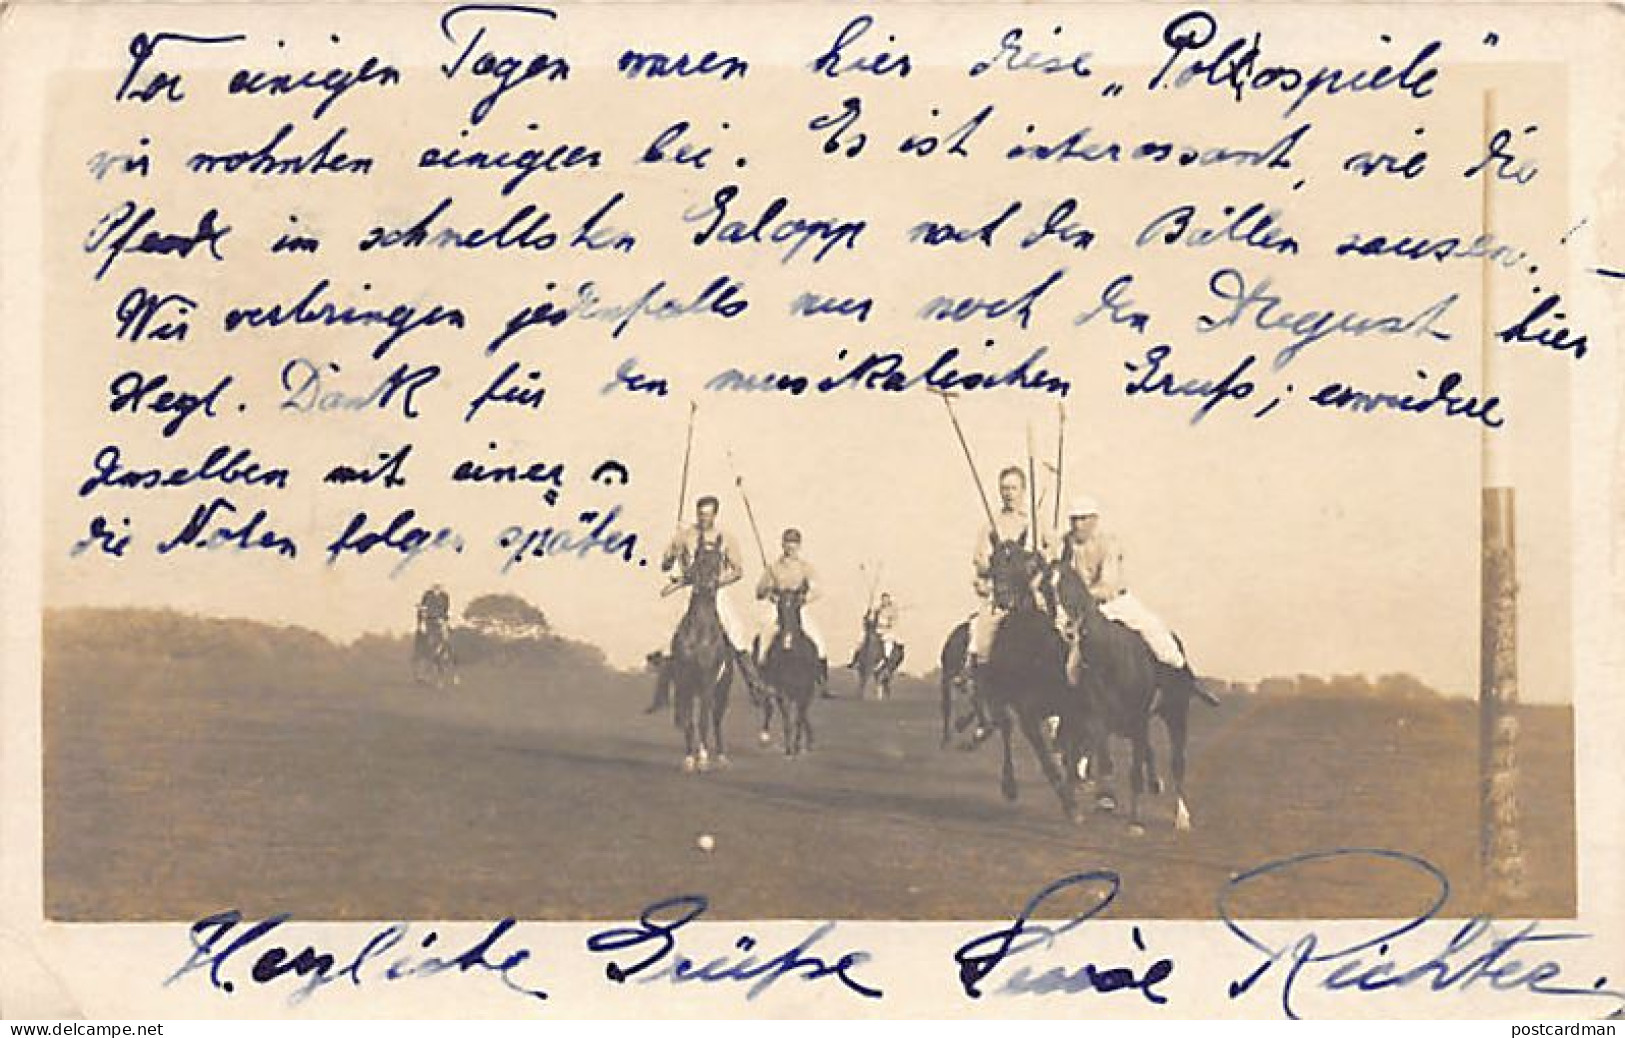 Vor einigen Tagen waren hier diese „Polospiele"
wir wohnten einigen bei. Es ist interessant, wie die
Pferde im schnellsten Galopp nach den Bällen sausen!
Wir verbringen jedenfalls nur noch den August hier
Hegl. Dank für den musikalischen Gruß; erwidere
denselben mit einer 𝄐
die Noten folgen später.
Herzliche Grüße Richter.
postcardman